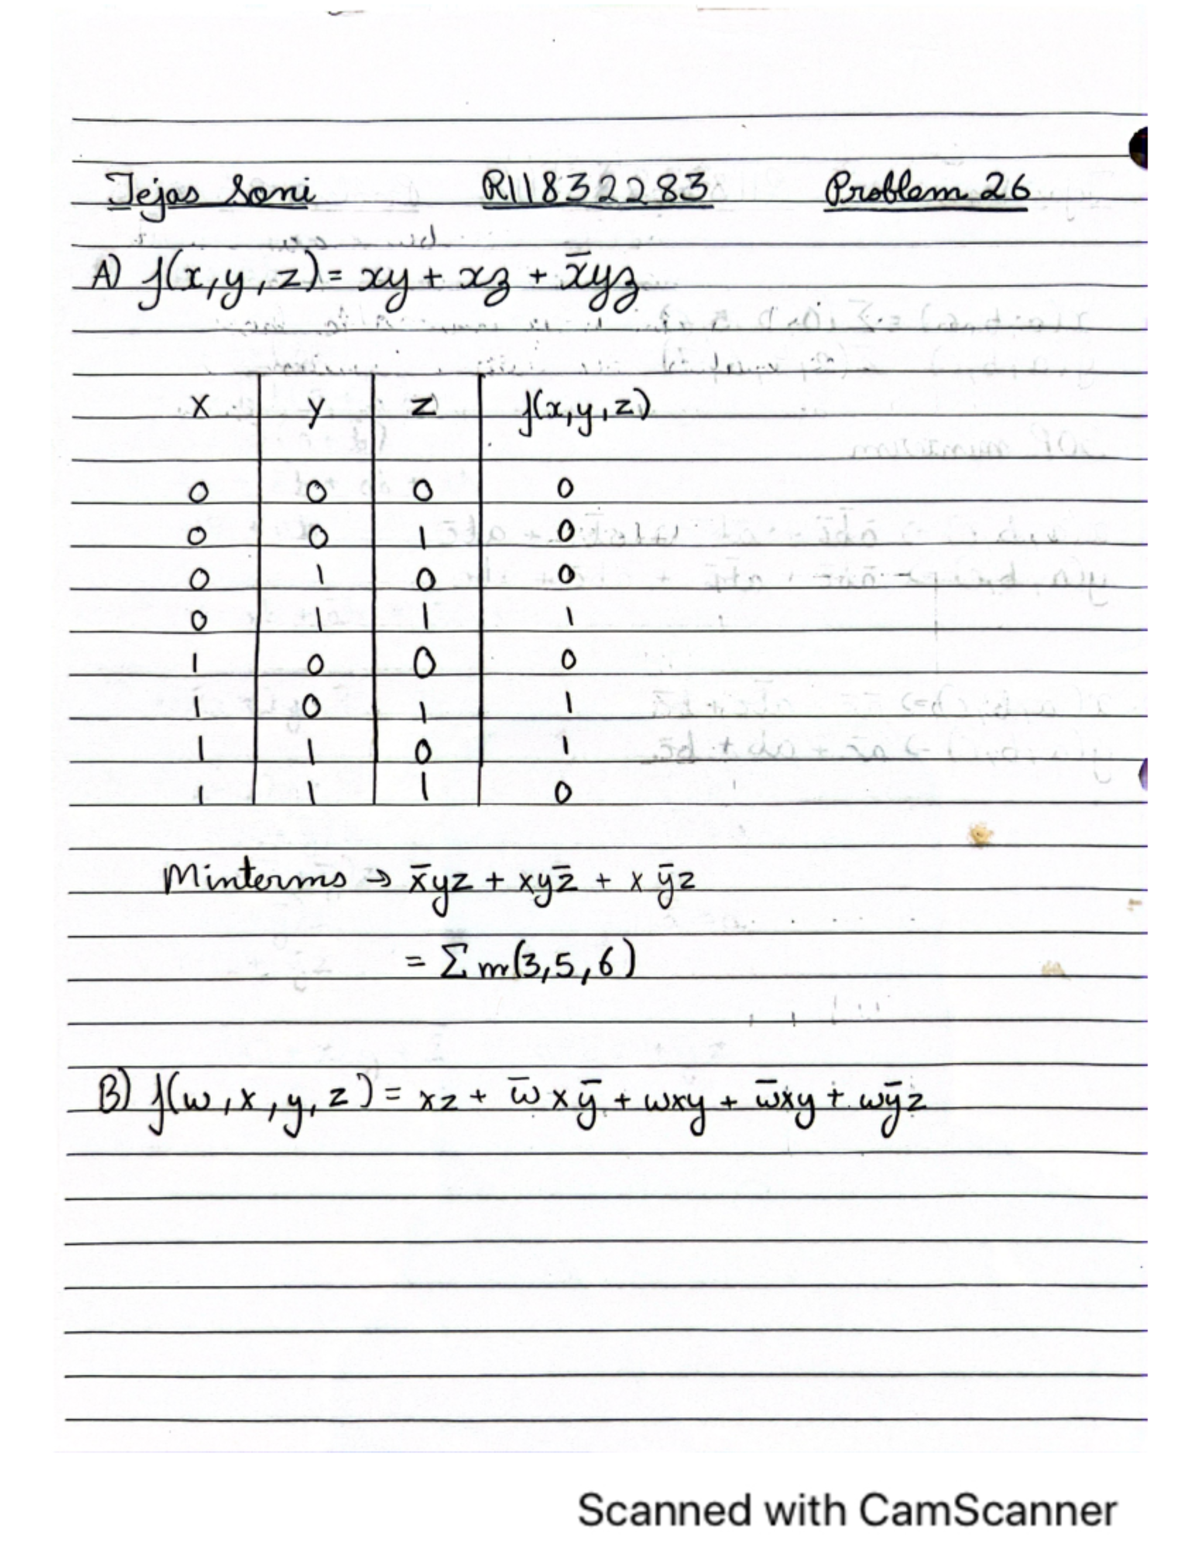 Tejas Soni R11832283 Problem 26
A) f(x,y,z) = xy + xz + x̄yz
x y z f(x,y,z)
0 0 0 0
0 0 1 0
0 1 0 0
0 1 1 1
1 0 0 0
1 0 1 1
1 1 0 1
1 1 1 0
Minterms → x̄yz + xyz̄ + xȳz
= Σm(3,5,6)
B) f(w,x,y,z) = xz + w̄xȳ + wxy + w̄xy + wȳz
Scanned with CamScanner